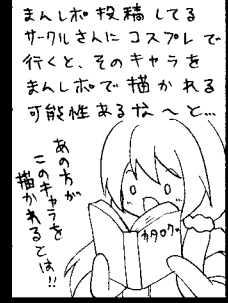 まんレポ投稿してる
サークルさんにコスプレで
行くと、そのキャラを
まんレポで描かれる
可能性あるな〜と…
あの方が
このキャラを
描かれるとは!!
カタログ